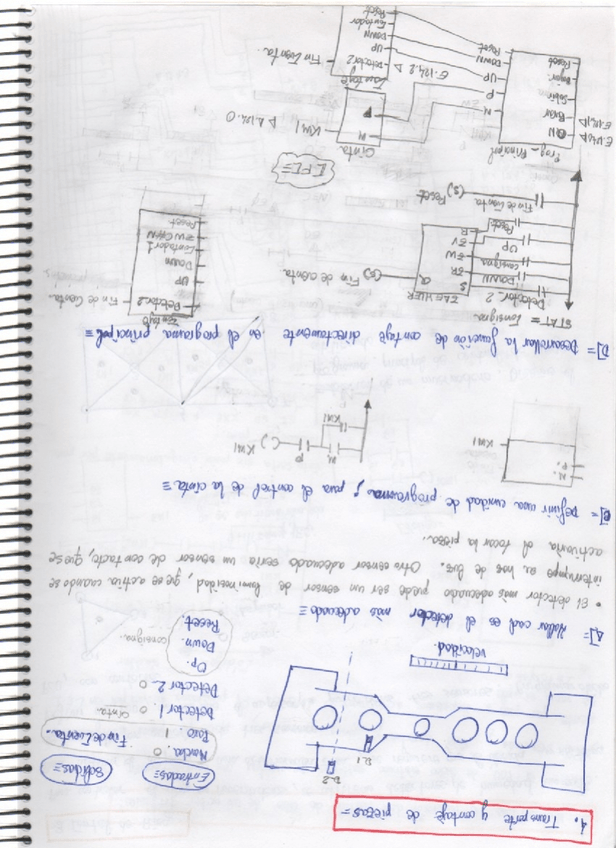 4. Transporte y contaje de piezas =
D.2
D.1
velocidad
Entradas =
Salidas =
Marcha. 0
Paro. 1
Fin de Cuenta.
Detector 1 0
Cinta.
Detector 2 0
Up.
Down. consigna.
Reset
A] = Hallar cual es el detector más adecuado =
• El detector más adecuado puede ser un sensor de luminosidad, qe se activa cuando se
interrumpe el haz de luz. Otro sensor adecuado sería un sensor de contacto, que se
activaria al tocar la pieza.
= Definir una unidad de programa, para el control de la cinta =
M.
P.
KM1
M
P
KM1
KM1
D] = Desarrollar la función de contaje directamente en el programa principal =
STAT = Consigna.
Detector 2
DOWN
consigna
UP
Reset
ZAHLER
S
ZR
ZW
ZV
R
Q
Fin de Cuenta
Fin de Cuenta
(S)
Reset
Detector 2
UP
Down
Contador 1
Reset
Fin de Cuenta.
Prog. Principal
E.124.0
ON
Bajar
Subir
Reset
M
P
UP
DOWN
Reset
Cinta
M
P
KM1
A.124.0
E.124.2
Detector 2
UP
DOWN
Contador
Reset
Fin Cuenta